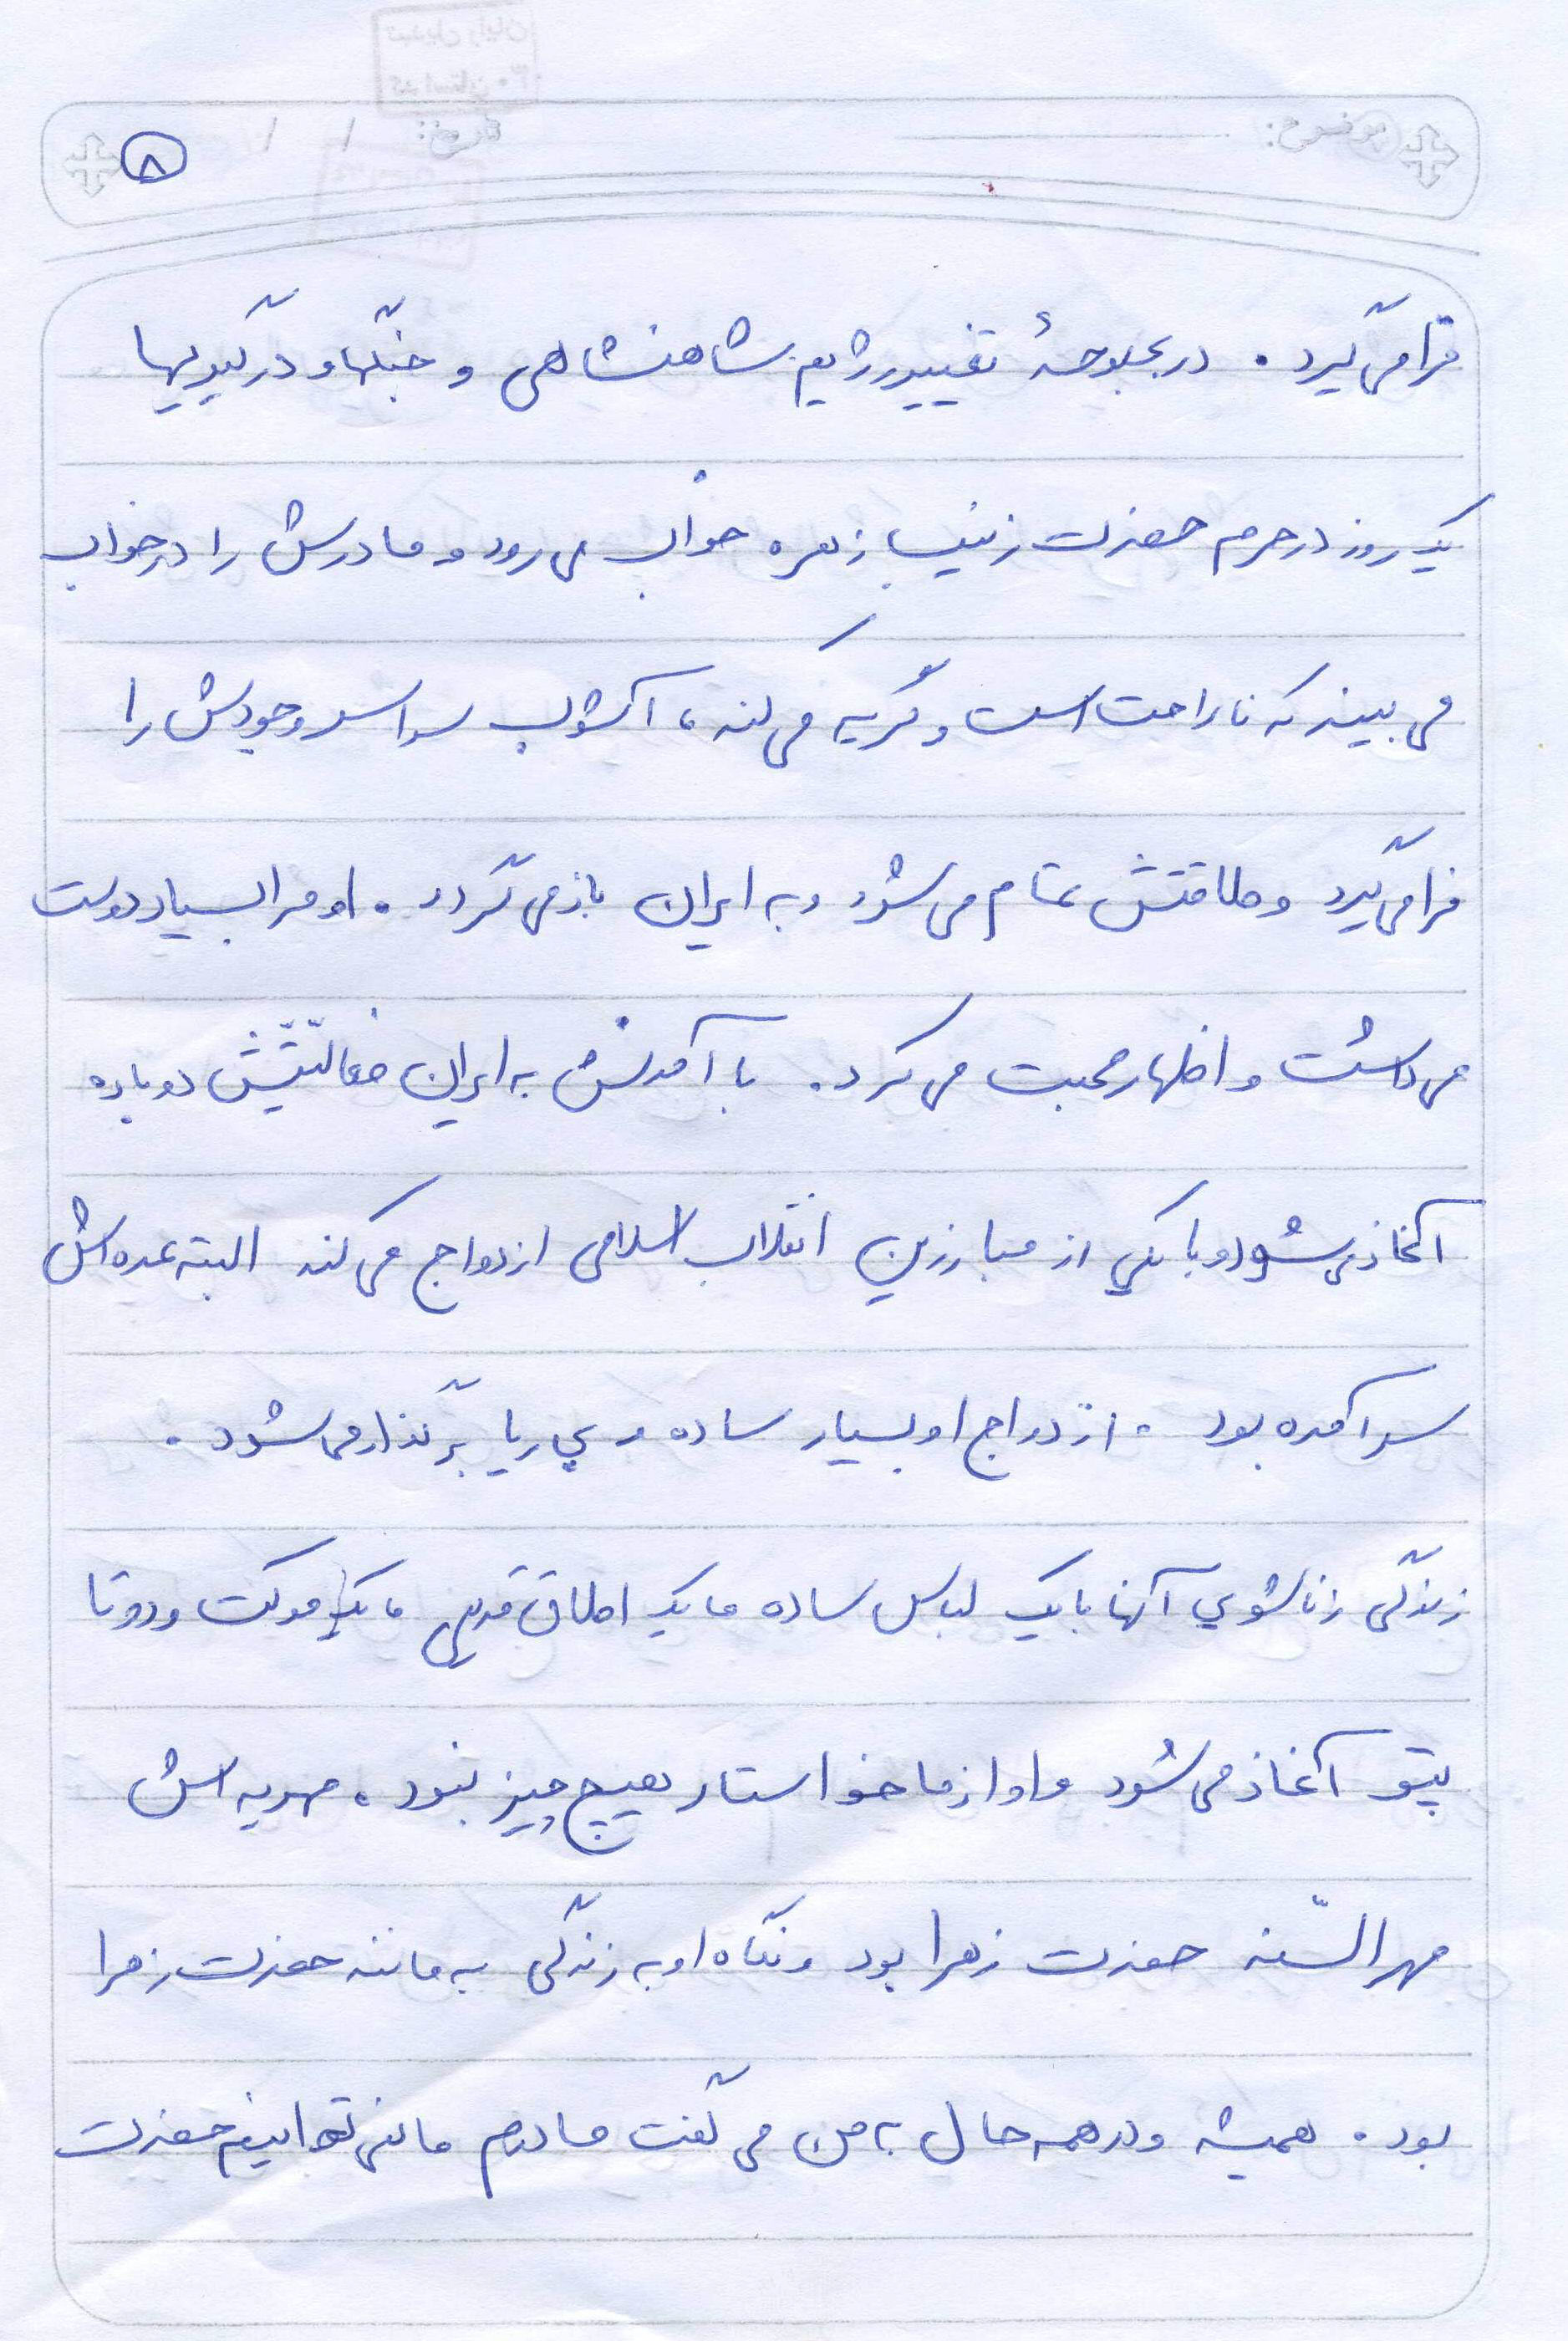 موضوع:
تاریخ: / /
۸
فرا می‌گیرد. در بحبوحهٔ تغییر رژیم شاهنشاهی و جنگها و درگیریها
یک روز در حرم حضرت زینب زهره خواب می‌رود و مادرش را در خواب
می‌بیند که ناراحت است و گریه می‌کند، آشوب سراسر وجودش را
فرا می‌گیرد و طاقتش تمام می‌شود و به ایران باز می‌گردد. او مرا بسیار دوست
می‌داشت و اظهار محبت می‌کرد. با آمدنش به ایران فعالیّتش دوباره
آغاز می‌شود و با یکی از مبارزین انقلاب اسلامی ازدواج می‌کند البته عده‌اش
سرآمده بود. ازدواج او بسیار ساده و بی ریا برگذار می‌شود.
زندگی زناشویی آنها با یک لباس ساده و یک اطاق قدیمی و یک موکت و دو تا
پتو آغاز می‌شود و او از ما خواستار هیچ چیز نبود. مهریه‌اش
مهرالسّنه حضرت زهرا بود و نگاه او به زندگی به مانند حضرت زهرا
بود. همیشه و در همه حال به من می‌گفت مادرم ما نمی‌توانیم حضرت